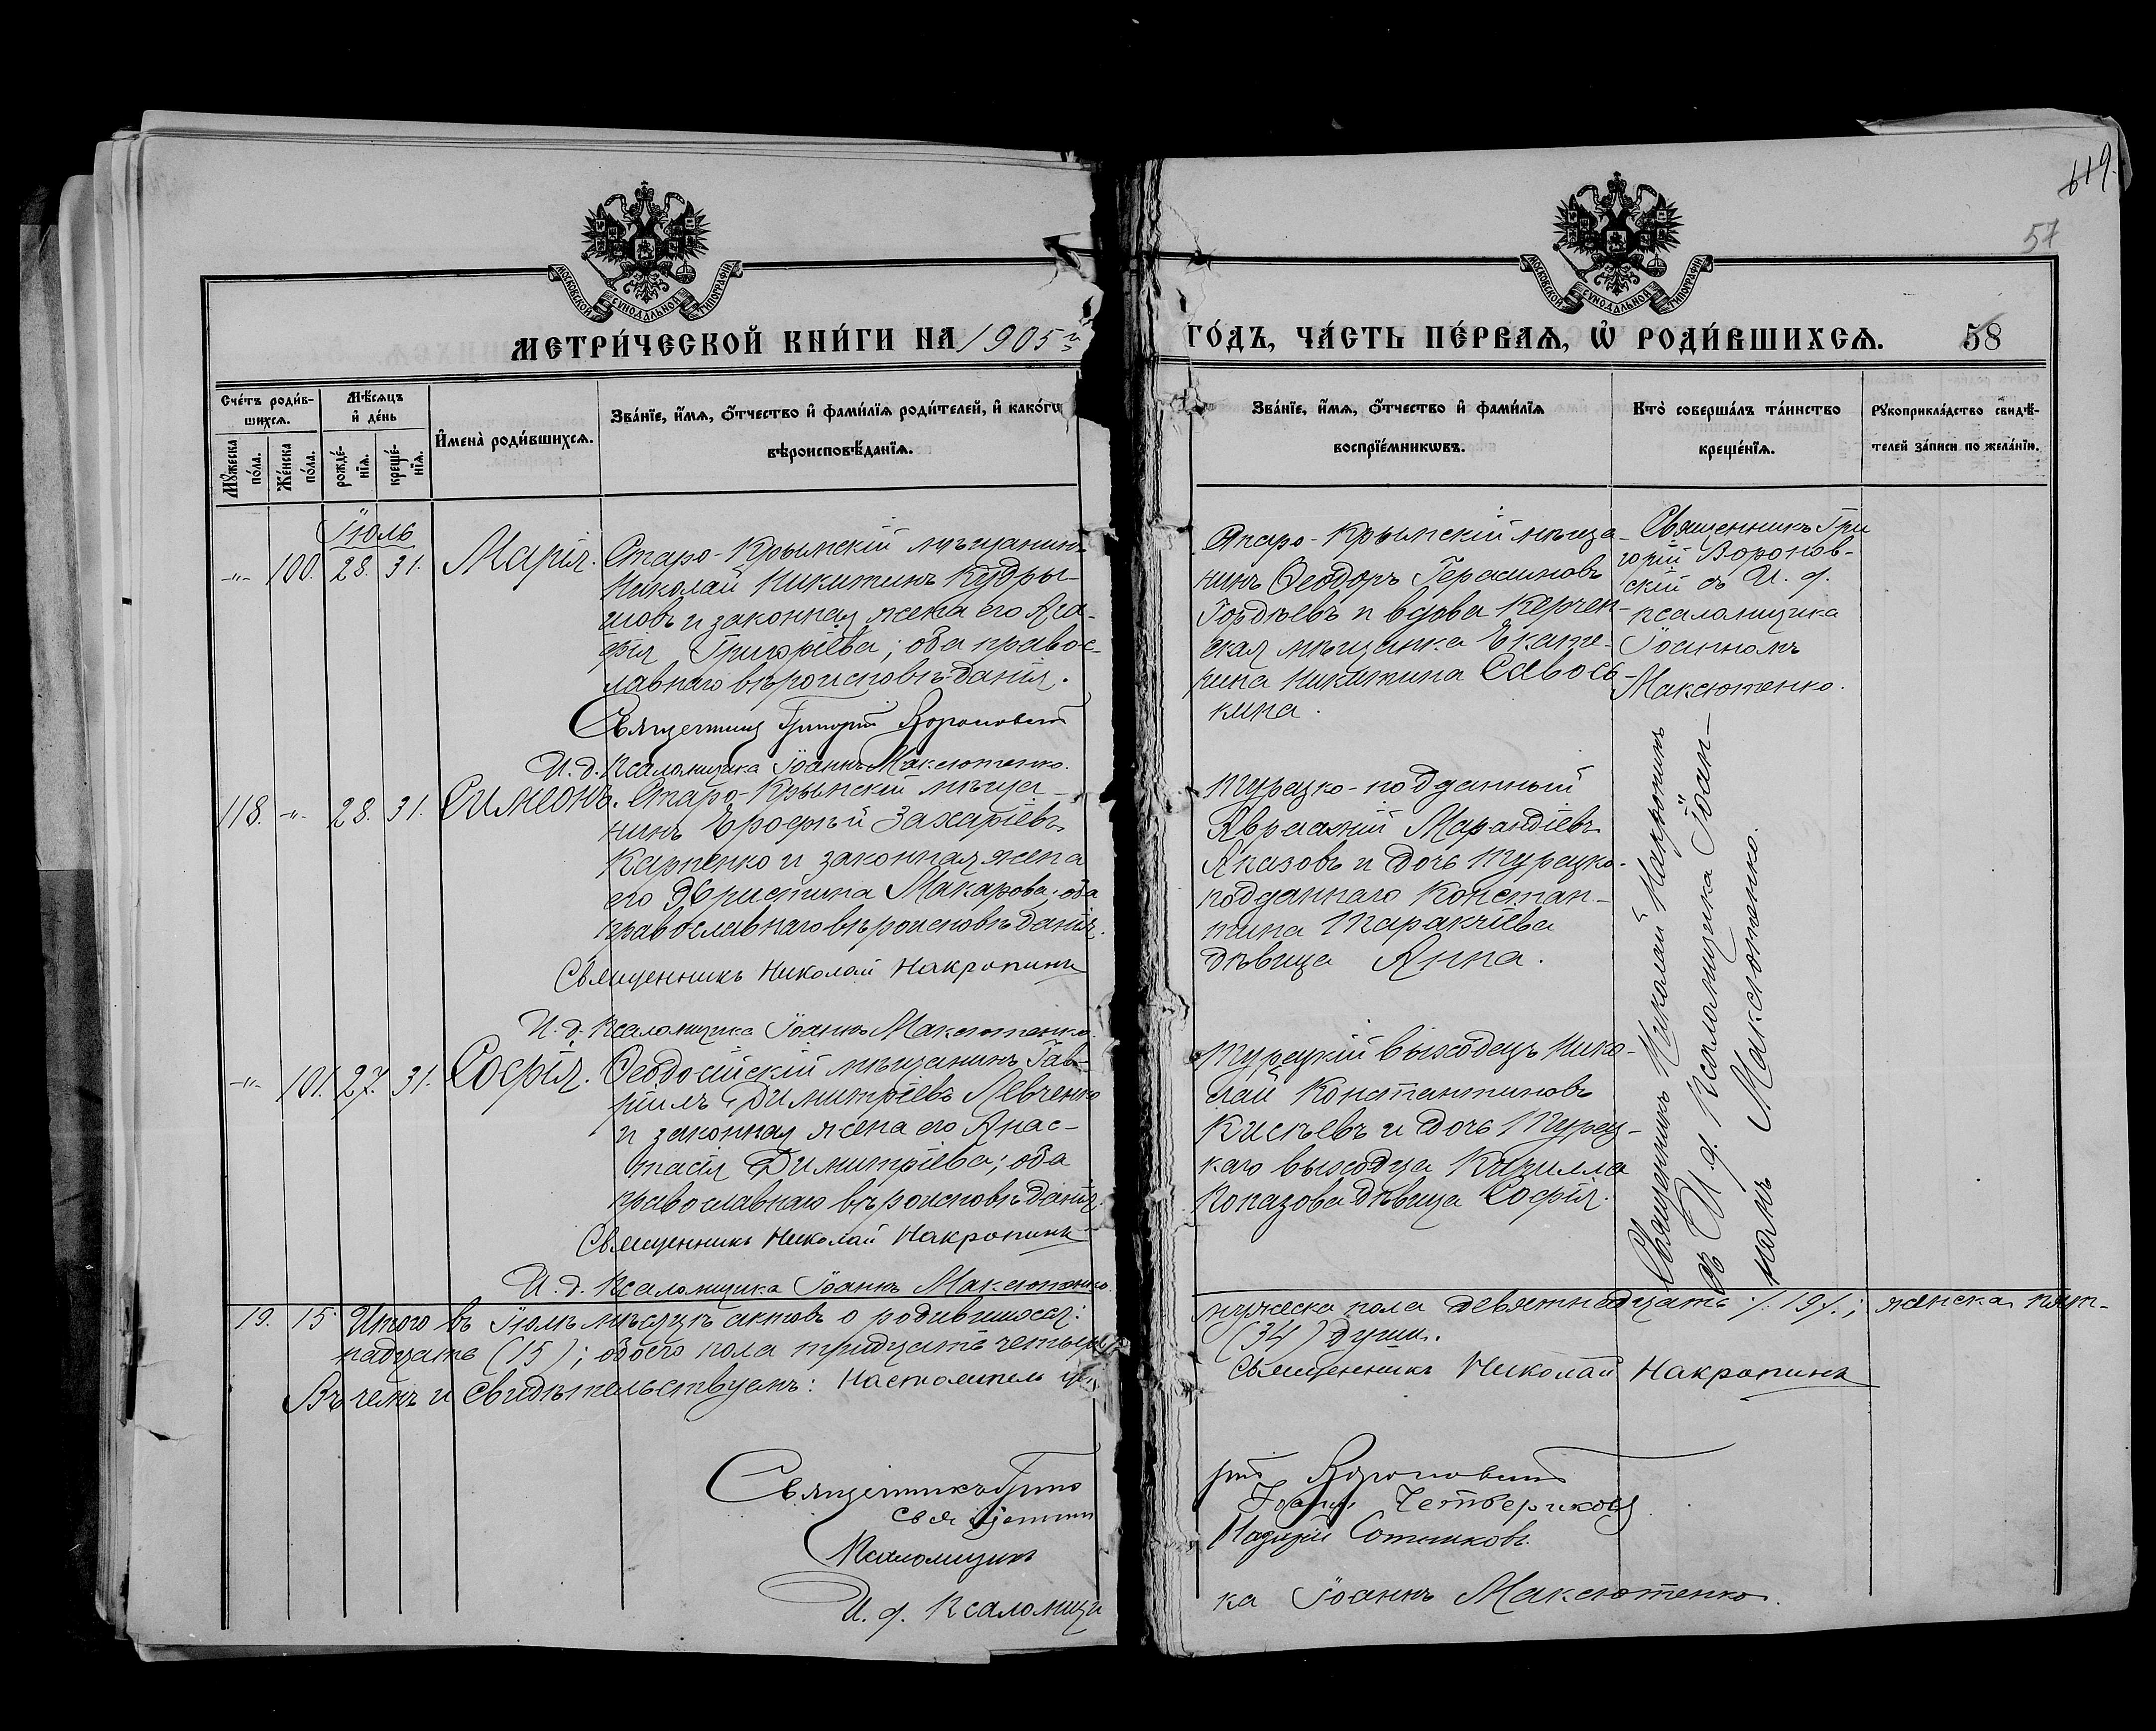 619.
57
МОСКОВСКОЙ СУНОДАЛЬНОЙ ТИПОГРАФІИ
МОСКОВСКОЙ СУНОДАЛЬНОЙ ТИПОГРАФІИ
МЕТРИ́ЧЕСКОЙ КНИ́ГИ НА 1905й
ГО́ДЪ, ЧА́СТЬ ПЕ́РВАѦ, Ѡ҆ РОДИ́ВШИХСѦ. 58
Сче́тъ роди́в-
шихсѧ.
Мꙋ́жеска
по́ла.
Же́нска
по́ла.
Мѣ́сѧцъ
и҆ де́нь
рожде́-
нїѧ.
креще́-
нїѧ.
И҆мена̀ роди́вшихсѧ.
Зва́нїе, и҆́мѧ, ѻ҆́тчество и҆ фами́лїѧ роди́телей, и҆ како́гѡ
вѣроисповѣ́данїѧ.
Зва́нїе, и҆́мѧ, ѻ҆́тчество и҆ фами́лїѧ
воспрїе́мникѡвъ.
Кто̀ соверша́лъ та́инство
креще́нїѧ.
Рꙋкоприкла́дство свидѣ́-
телей за́писи по жела́нїю.
Іюль
-"- 100. 28. 31. Марія.
Старо-Крымскій мѣщанинъ
Николай Никитинъ Кудря-
шовъ и законная жена его Ага-
фія Григоріева; оба правос-
лавнаго вѣроисповѣданія.
Священникъ Григорій Вороновскій
И.д. Псаломщика Іоаннъ Максютенко.
Старо-Крымскій мѣща-
нинъ Ѳеодоръ Герасимовъ
Гордѣевъ и вдова Керчен-
ская мѣщанка Екате-
рина Никитина Савось-
кина.
Священникъ Гри
горій Воронов-
скій съ И. д.
псаломщика
Іоанномъ
Максютенко.
118. -"- 28. 31. Симеонъ.
Старо-Крымскій мѣща-
нинъ Ерофѣй Захаріевъ
Карпенко и законная жена
его Христина Макарова; оба
православнаго вѣроисповѣданія.
Священникъ Николай Накропинъ
И.д. Псаломщика Іоаннъ Максютенко.
Турецко-подданный
Авраамій Марандіевъ
Аказовъ и дочь Турецко-
подданнаго Констан-
тина Таракчіева
дѣвица Анна.
Священникъ Николай Накропинъ
съ И д. Псаломщика Іоан-
номъ Максютенко.
-"- 101. 27. 31. Софія.
Ѳеодосійскій мѣщанинъ Гав-
ріилъ Димитріевъ Левченко
и законная жена его Анас-
тасія Димитріева; оба
православнаго вѣроисповѣданія.
Священникъ Николай Накропинъ
И.д. Псаломщика Іоаннъ Максютенко.
Турецкій выходецъ Нико-
лай Константиновъ
Кисѣевъ и дочь Турец-
каго выходца Кирилла
Копазова дѣвица Софія.
19. 15 Итого въ Іюлѣ мѣсяцѣ актовъ о родившихся:
мужеска пола девятнадцать ./.19./.; женска пят-
надцать (15); обоего пола тридцать четыре
(34) души.
Въ чемъ и свидѣтельствуемъ: Настоятель
Священникъ Николай Накропинъ
Священникъ Григо
рій Вороновскій
Священник
Іоаннъ Четвериковъ
Псаломщикъ
Сотниковъ.
И. д. Псаломщи
ка Іоаннъ Максютенко.